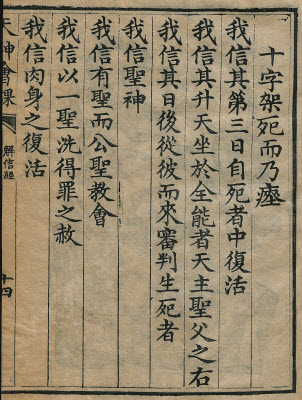 十字架死而乃瘞
我信其第三日自死者中復活
我信其升天坐於全能者天主聖父之右
我信其日後從彼而來審判生死者
我信聖神
我信有聖而公聖教會
我信以一聖洗得罪之赦
我信肉身之復活
天神會課
解信經
十四